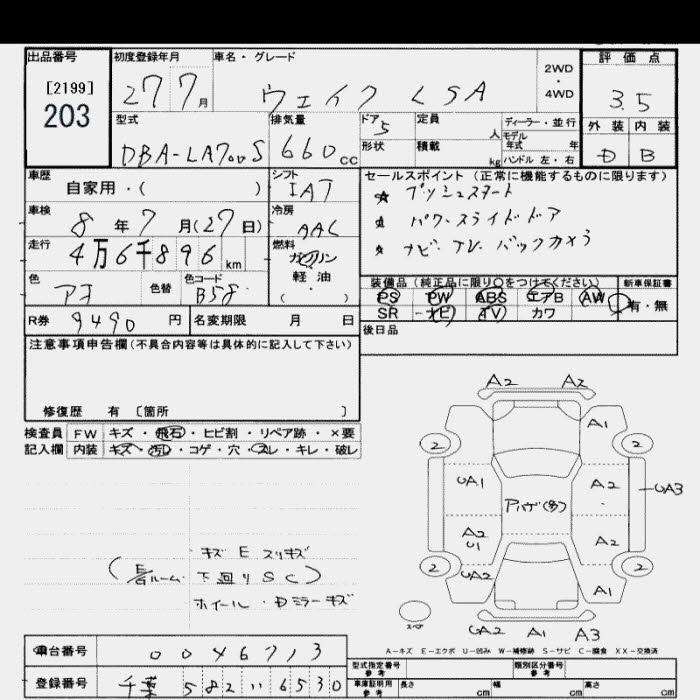 出品番号 初度登録年月 車名・グレード 2WD ・ 4WD 評価点
[2199] 27 7月 ウェイク LSA 3.5
203
型式 排気量 ドア 5 定員 人 ディーラー・並行 外装 内装
DBA-LA700S 660cc 形状 積載 kg モデル年式 年 D B
ハンドル 左・右
車歴 シフト セールスポイント (正常に機能するものに限ります)
自家用・( ) IAT ☆ プッシュスタート
車検 冷房 ☆ パワースライドドア
8年7月(27日) AAC ☆ ナビ. TV. バックカメラ
走行 燃料
4万6千896km ガソリン
軽・油
( ・ )
色 色替 色コード 装備品 (純正品に限り○をつけてください) 新車保証書
アオ B58 PS PW ABS エアB AW 有・無
SR ナビ TV カワ
R券 9490円 名変期限 月 日 後日品
注意事項申告欄(不具合内容等は具体的に記入して下さい)
修復歴 有 〔箇所 〕
検査員 FW キズ・飛石・ヒビ割・リペア跡・×要
記入欄 内装 キズ・汚レ・コゲ・穴・スレ・キレ・破レ
A2 A2
A1
2 2
UA1 A2 UA3
アハゲ(多)
A2 U1 A2
2 2
UA2 A1
UA2 A1 A3
キズ E スリキズ
(E/Gルーム 下回り SC)
ホイール・Dミラーキズ
A-キズ E-エクボ U-凹み W-補修跡 S-サビ C-腐食 XX-交換済
車台番号 0046713 型式指定番号 参考 類別区分番号 参考
登録番号 千葉 582 い 6530 車庫証明用 参考 長さ cm 幅 cm 高さ cm